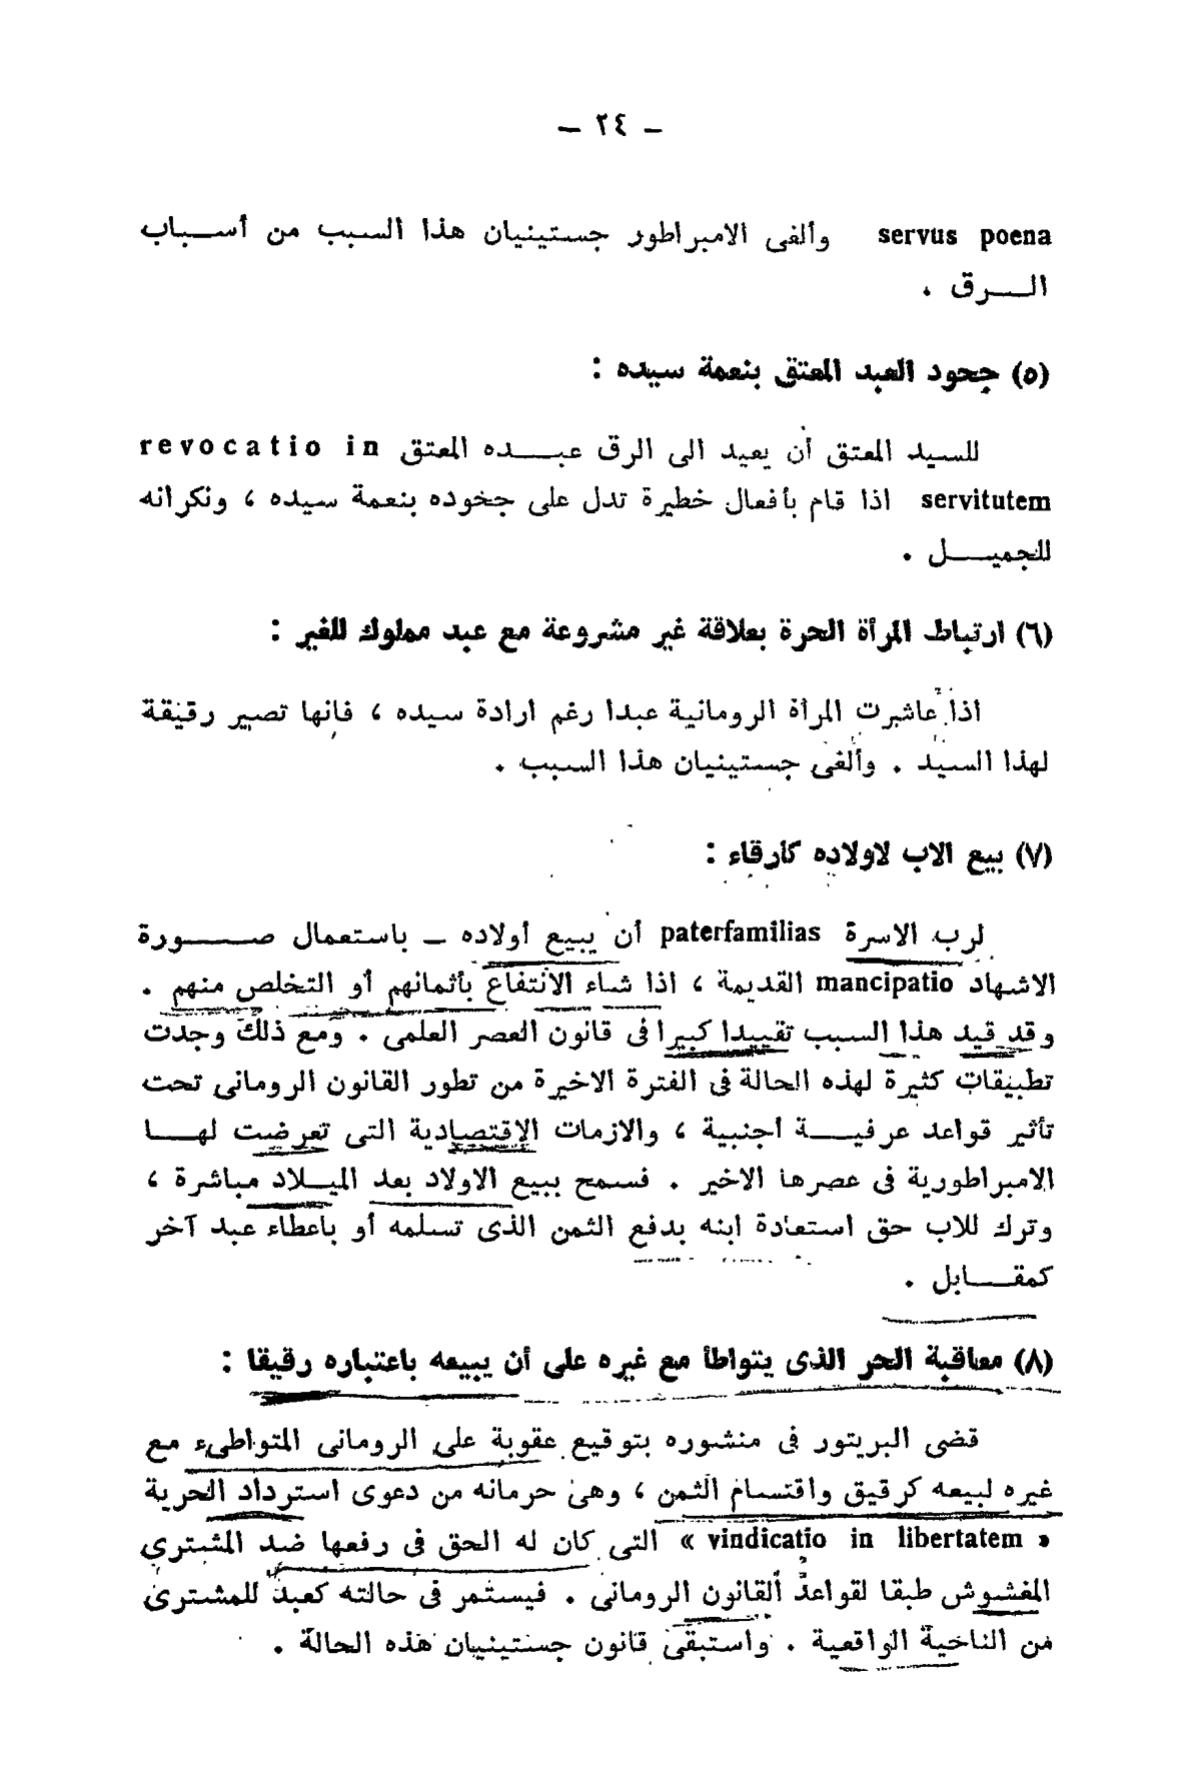 – ٢٤ –
servus poena وألغى الامبراطور جستينيان هذا السبب من أسباب
الرق .
(٥) جحود العبد المعتق بنعمة سيده :
للسيد المعتق أن يعيد الى الرق عبده المعتق revocatio in
servitutem اذا قام بأفعال خطيرة تدل على جحوده بنعمة سيده ، ونكرانه
للجميل .
(٦) ارتباط المرأة الحرة بعلاقة غير مشروعة مع عبد مملوك للغير :
اذا عاشرت المرأة الرومانية عبدا رغم ارادة سيده ، فانها تصير رقيقة
لهذا السيد . وألغى جستينيان هذا السبب .
(٧) بيع الاب لاولاده كأرقاء :
لرب الاسرة paterfamilias أن يبيع أولاده – باستعمال صورة
الاشهاد mancipatio القديمة ، اذا شاء الانتفاع بأثمانهم أو التخلص منهم .
وقد قيد هذا السبب تقييدا كبيرا فى قانون العصر العلمى . ومع ذلك وجدت
تطبيقات كثيرة لهذه الحالة فى الفترة الاخيرة من تطور القانون الرومانى تحت
تأثير قواعد عرفية اجنبية ، والازمات الاقتصادية التى تعرضت لها
الامبراطورية فى عصرها الاخير . فسمح ببيع الاولاد بعد الميلاد مباشرة ،
وترك للاب حق استعادة ابنه بدفع الثمن الذى تسلمه أو باعطاء عبد آخر
كمقابل .
(٨) معاقبة الحر الذى يتواطأ مع غيره على أن يبيعه باعتباره رقيقا :
قضى البريتور فى منشوره بتوقيع عقوبة على الرومانى المتواطىء مع
غيره لبيعه كرقيق واقتسام الثمن ، وهى حرمانه من دعوى استرداد الحرية
« vindicatio in libertatem » التى كان له الحق فى رفعها ضد المشترى
المغشوش طبقا لقواعد القانون الرومانى . فيستمر فى حالته كعبد للمشترى
من الناحية الواقعية . واستبقى قانون جستينيان هذه الحالة .